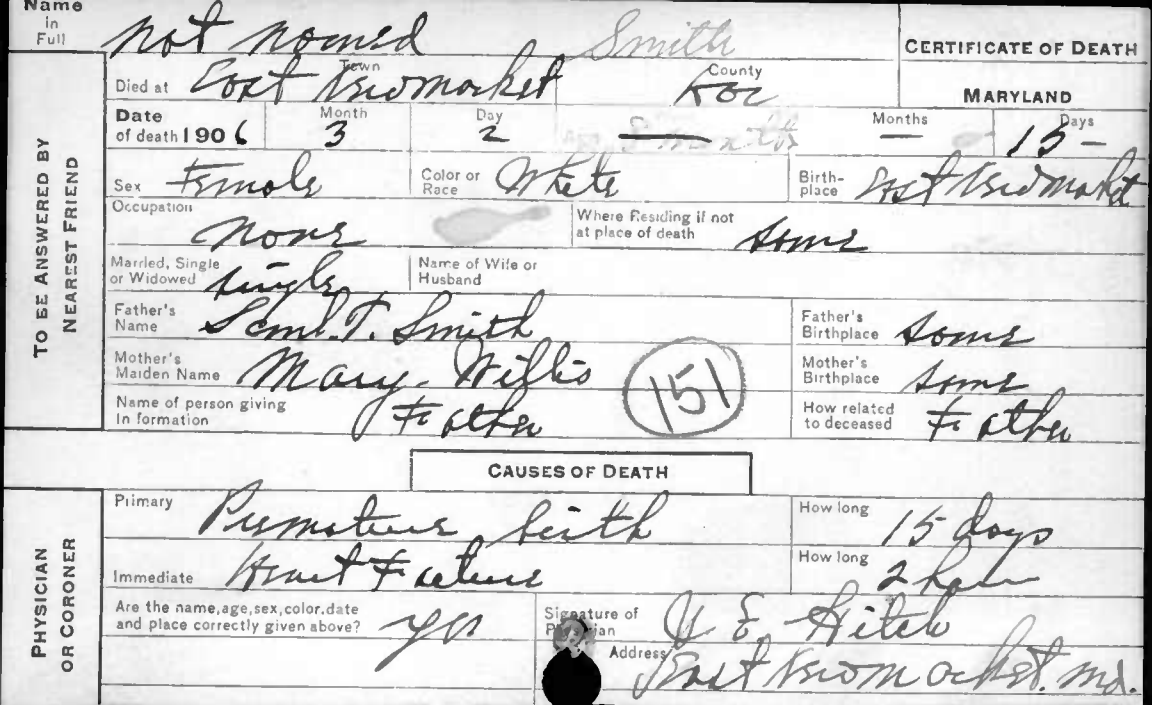 Name in Full not named Smith
CERTIFICATE OF DEATH
TO BE ANSWERED BY NEAREST FRIEND
Died at Town East Newmarket County Dor
MARYLAND
Date of death 1906 Month 3 Day 2 — Months — Days 15 —
Sex Female Color or Race White Birth-place East Newmarket
Occupation none Where Residing if not at place of death same
Married, Single or Widowed single Name of Wife or Husband
Father's Name Saml. T. Smith Father's Birthplace same
Mother's Maiden Name Mary Willis Mother's Birthplace same
151
Name of person giving In formation Father How related to deceased Father
CAUSES OF DEATH
PHYSICIAN OR CORONER
Primary Premature birth How long 15 days
Immediate Heart Failure How long 2 hours
Are the name,age,sex,color,date and place correctly given above? yes Signature of Physician E. Hitch
Address East Newmarket. Md.